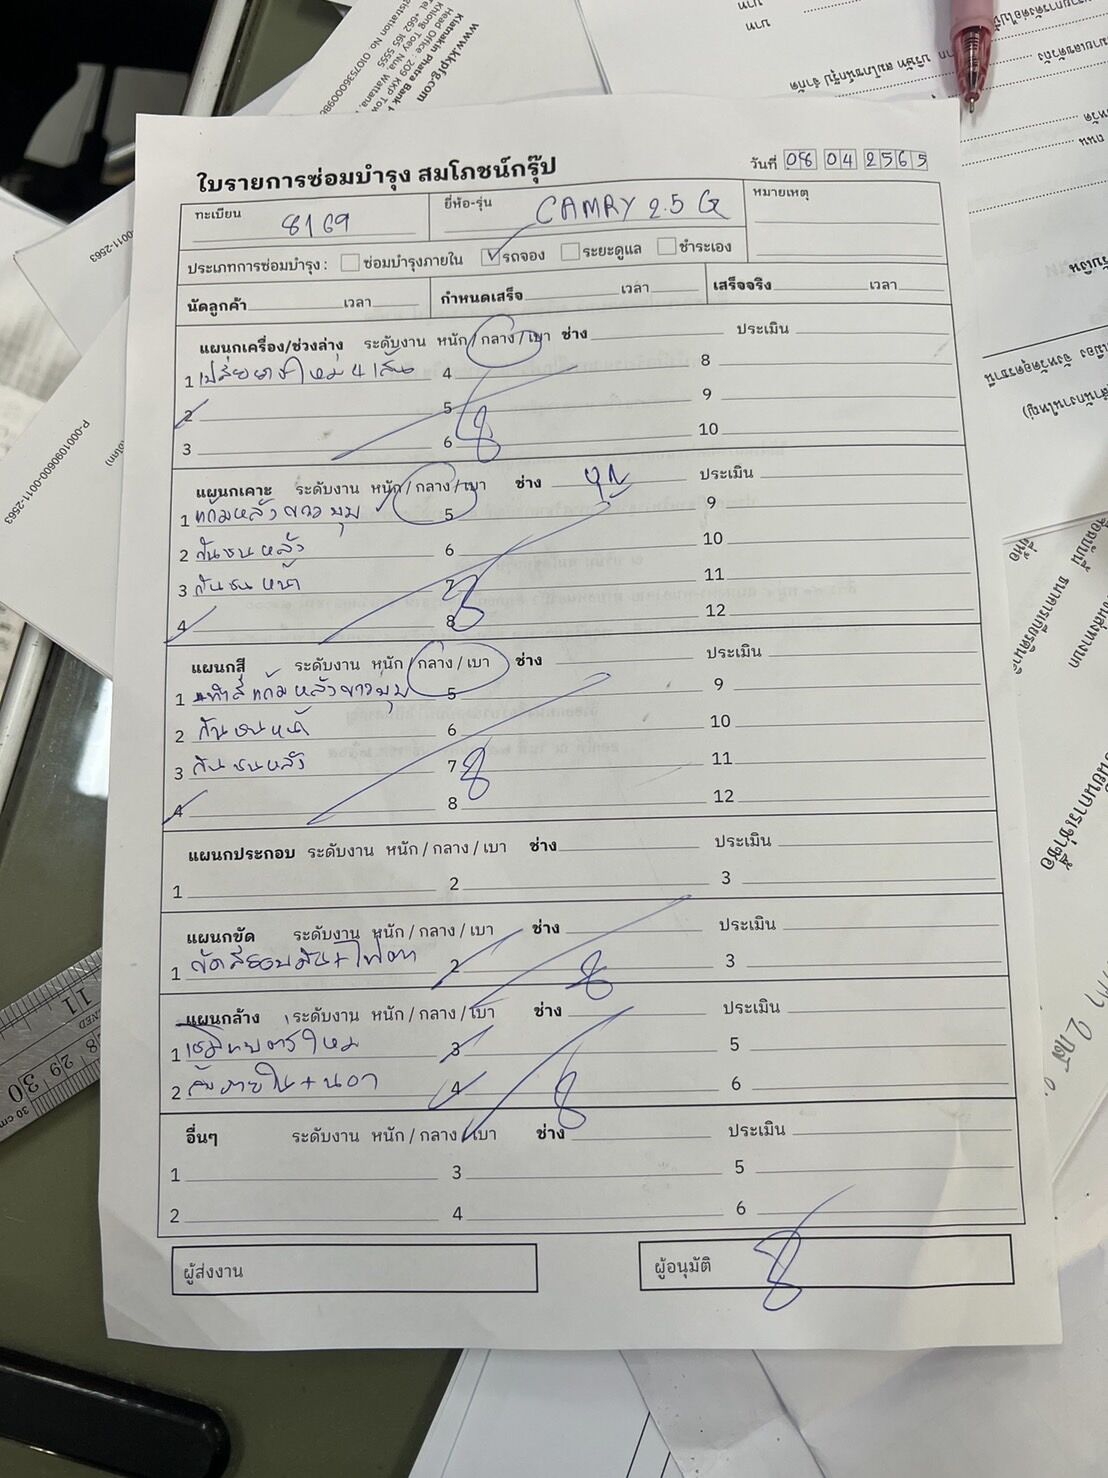 www.kkpfg.com
Kiatnakin Phatra Bank
Head Office 209 KKP Tow
Khlong Toey Nua, Wattana,
Tel. +662 165 5555
Registration No. 01075360009
P-0001090600-0011-2563
0011-2563
ใบรายการซ่อมบำรุง สมโภชน์กรุ๊ป
วันที่ 08 04 2565
ทะเบียน 8169 ยี่ห้อ-รุ่น CAMRY 2.5 G หมายเหตุ
ประเภทการซ่อมบำรุง : ซ่อมบำรุงภายใน รถจอง ระยะดูแล ชำระเอง
นัดลูกค้า เวลา กำหนดเสร็จ เวลา เสร็จจริง เวลา
แผนกเครื่อง/ช่วงล่าง ระดับงาน หนัก / กลาง / เบา ช่าง ประเมิน
1 เปลี่ยนยางใหม่ 4 เส้น 4 8
2 5 9
3 6 10
แผนกเคาะ ระดับงาน หนัก / กลาง / เบา ช่าง ประเมิน
1 แก้มหลังขวาบุบ 5 9
2 กันชนหลัง 6 10
3 กันชนหน้า 7 11
4 8 12
แผนกสี ระดับงาน หนัก / กลาง / เบา ช่าง ประเมิน
1 ทำสีแก้มหลังขวาบุบ 5 9
2 กันชนหน้า 6 10
3 กันชนหลัง 7 11
4 8 12
แผนกประกอบ ระดับงาน หนัก / กลาง / เบา ช่าง ประเมิน
1 2 3
แผนกขัด ระดับงาน หนัก / กลาง / เบา ช่าง ประเมิน
1 ขัดสีรอบคัน+ไฟตา 2 3
แผนกล้าง ระดับงาน หนัก / กลาง / เบา ช่าง ประเมิน
1 3 5
2 4 6
อื่นๆ ระดับงาน หนัก / กลาง / เบา ช่าง ประเมิน
1 3 5
2 4 6
ผู้ส่งงาน ผู้อนุมัติ